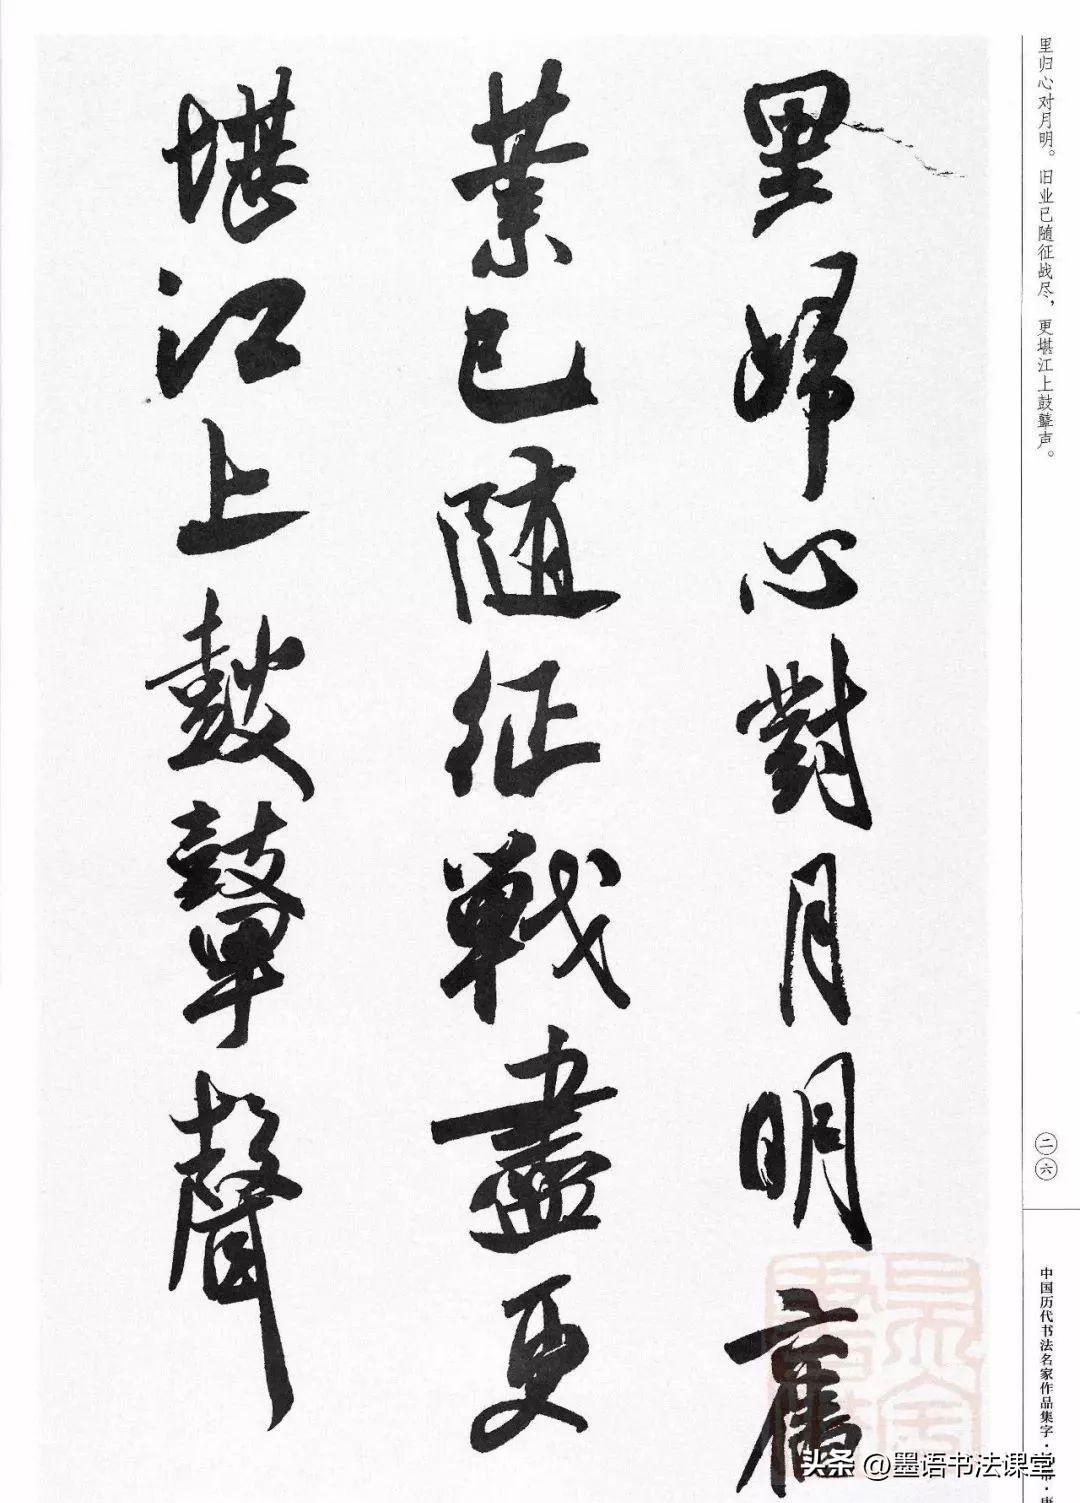 里歸心對月明舊
業已隨征戰盡更
堪江上鼓鼙聲
里归心对月明。旧业已随征战尽，更堪江上鼓鼙声。
二六
中国历代书法名家作品集字·
头条@墨语书法课堂